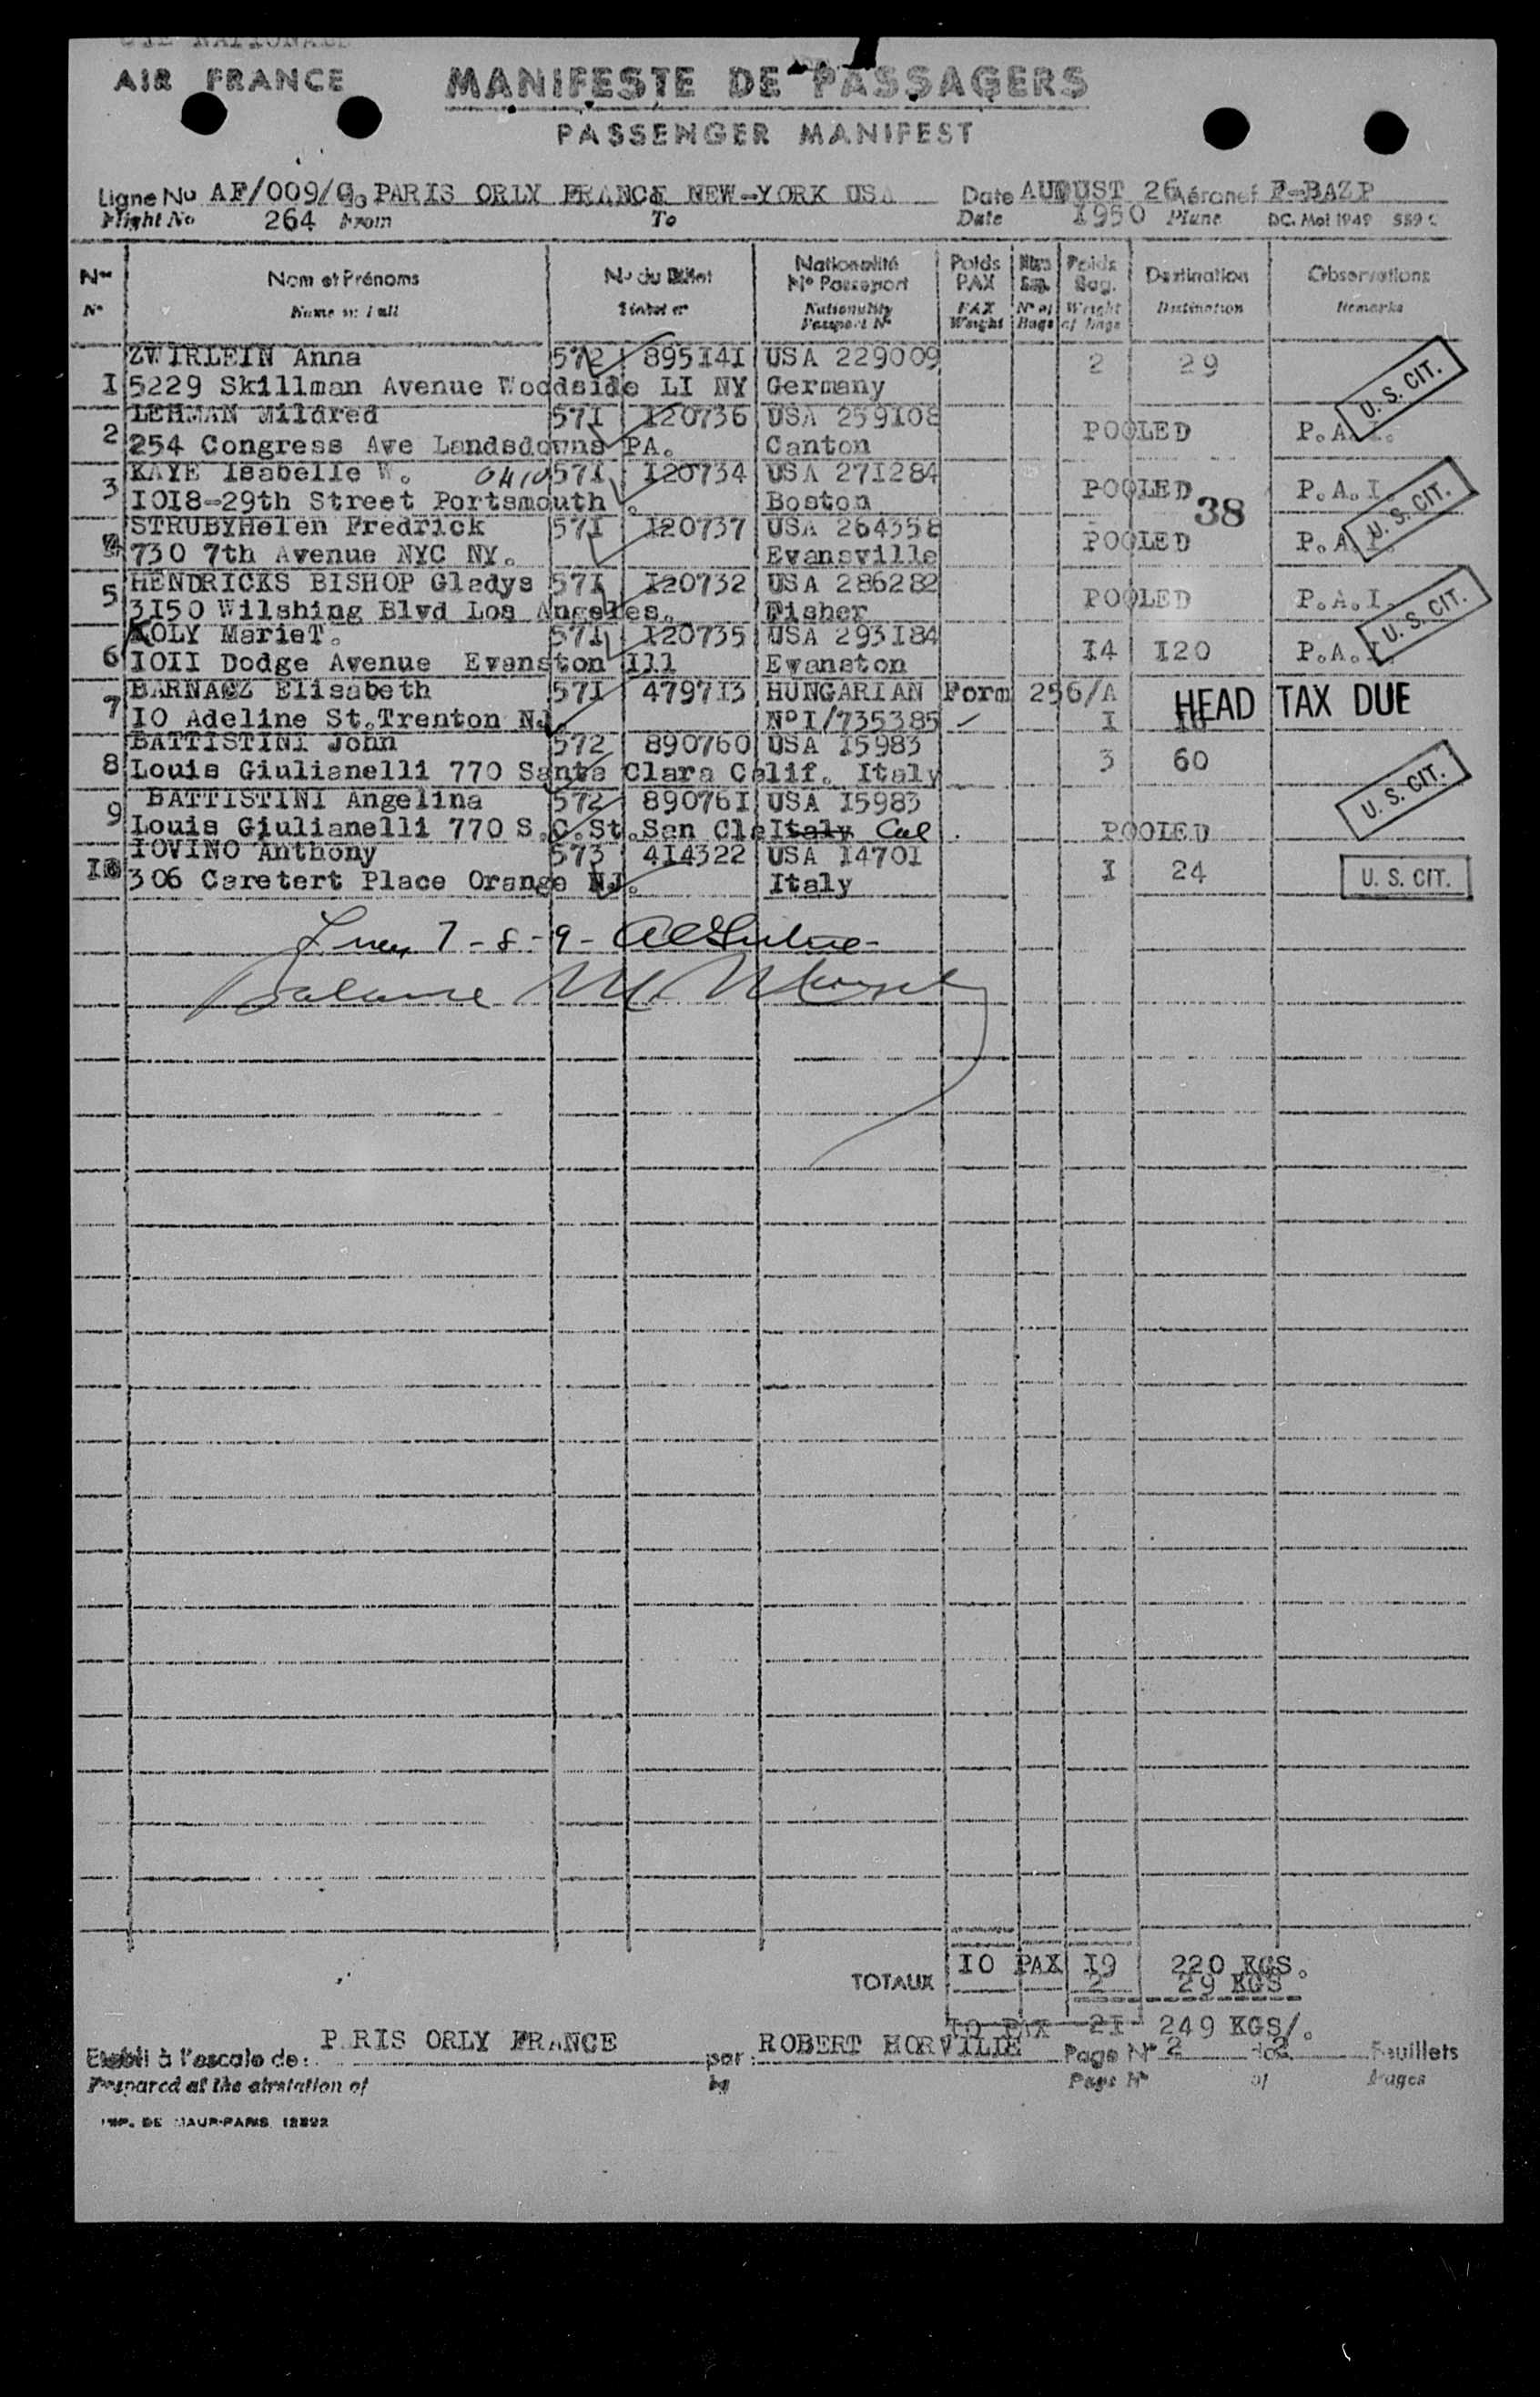 AIR FRANCE
MANIFESTE DE PASSAGERS
PASSENGER MANIFEST
Ligne No AF/009/G. PARIS ORLY FRANCE NEW-YORK USA Date AUGUST 26 Aéronef F-BAZP
Flight No 264 From To Date 1950 Plane DC. Mai 1949 559 C
Nos Nom et Prénoms No du Billet Nationalité No Passeport Poids PAX Nbre Bag. Poids Bag. Destination Observations
No Name in full Ticket no Nationality Passport No PAX Weight No of Bags Weight of bags Destination Remarks
ZWIRLEIN Anna 572 895I4I USA 229009 2 29
I 5229 Skillman Avenue Woodside LI NY Germany U. S. CIT.
LEHMAN Mildred 571 I20736 USA 259I08
2 254 Congress Ave Landsdowns PA. Canton POOLED P.A.I.
KAYE Isabelle W. OHIO 57I I20734 USA 27I284
3 I0I8-29th Street Portsmouth . Boston POOLED 38 P.A.I. U. S. CIT.
STRUBYHelen Fredrick 57I I20737 USA 264358
4 730 7th Avenue NYC NY. Evansville POOLED P.A.I.
HENDRICKS BISHOP Gladys 57I I20732 USA 286282
5 3I50 Wilshing Blvd Los Angeles. Fisher POOLED P.A.I. U. S. CIT.
KOLY MarieT. 57I I20735 USA 293I84
6 I0II Dodge Avenue Evanston Ill Evanston I4 I20 P.A.I.
BARNACZ Elisabeth 57I 4797I3 HUNGARIAN Form 256/A HEAD TAX DUE
7 I0 Adeline St.Trenton NJ. NºI/735385 I
BATTISTINI John 572 890760 USA I5983
8 Louis Giulianelli 770 Santa Clara Calif. Italy 3 60 U. S. CIT.
BATTISTINI Angelina 572 89076I USA I5983
9 Louis Giulianelli 770 S.C.St.San Cla Italy Cal . POOLED
IOVINO Anthony 573 4I4322 USA I470I
I0 306 Caretert Place Orange NJ. Italy I 24 U. S. CIT.
7 - 8 - 9 -
Balance
TOTAUX I0 PAX I9 220 KGS.
2 29 KGS
I0 PAX 2I 249 KGS/.
Etabli à l'escale de: P.RIS ORLY FRANCE par: ROBERT HORVILLE Page No 2 de 2 Feuillets
Prepared at the airstation of by Page No of Pages
IMP. DE MAUR-PARIS 12892